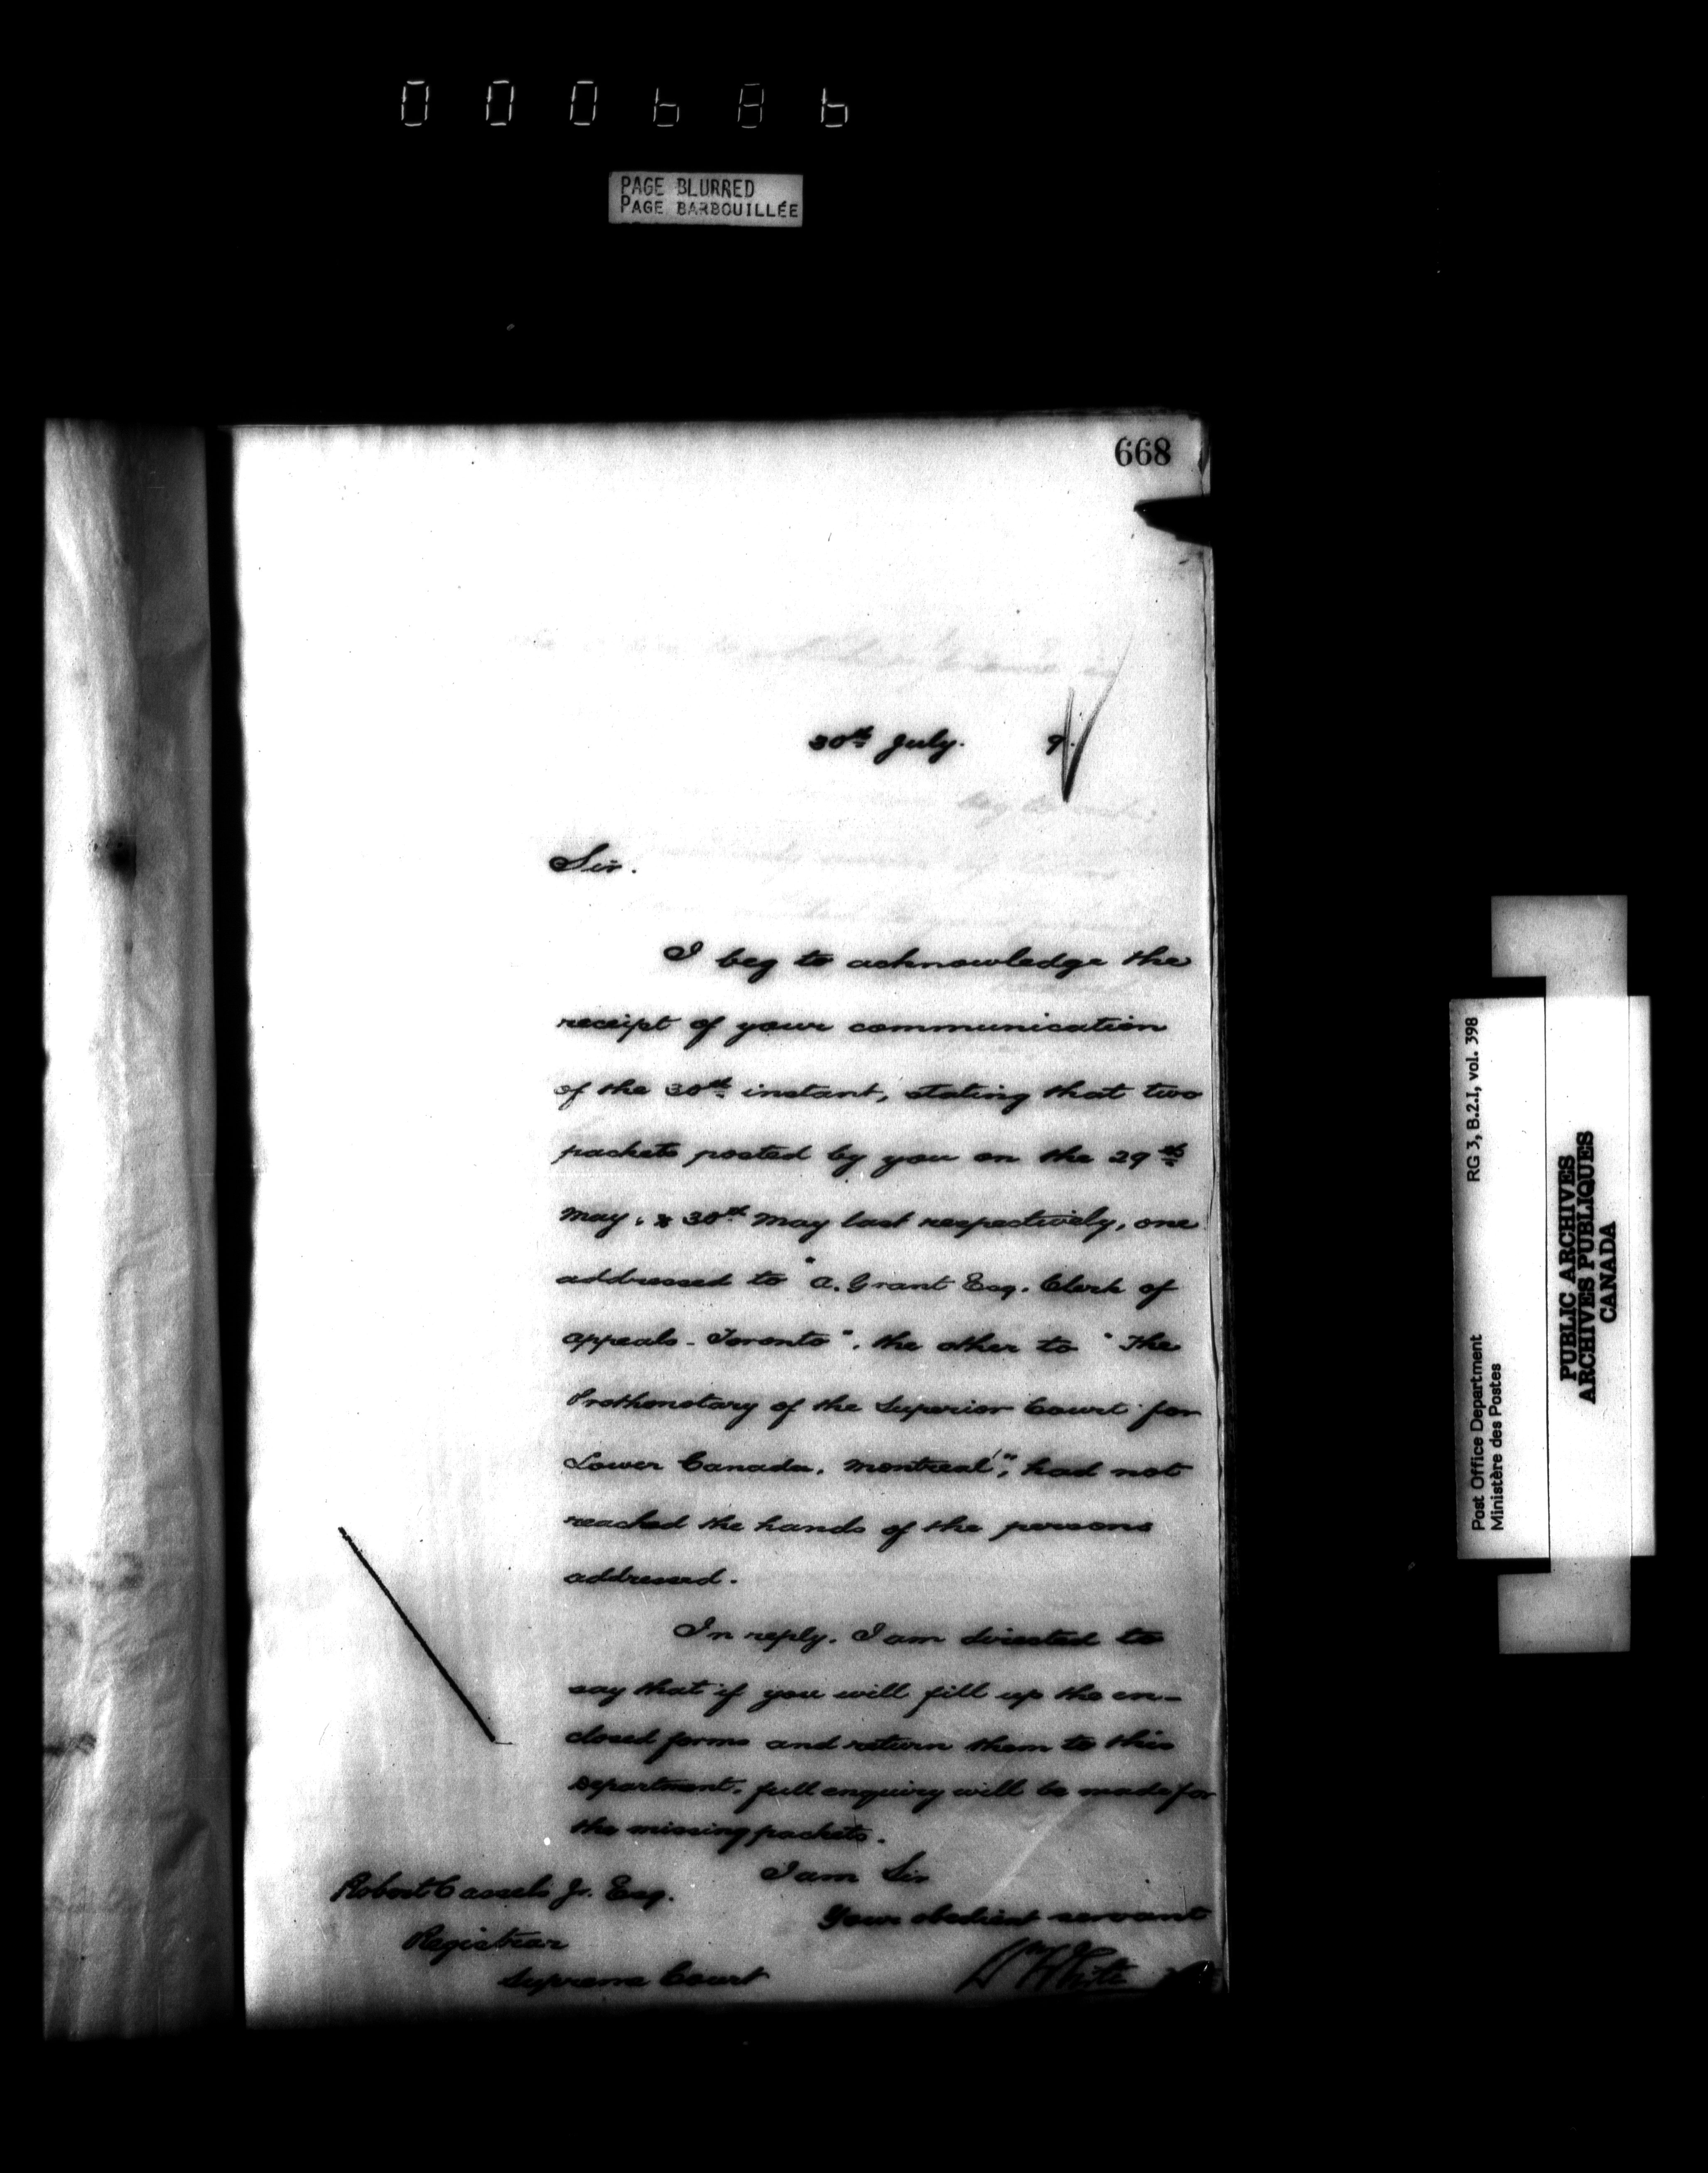 000686
PAGE BLURRED
PAGE BARBOUILLÉE
668
30th July. 9.
Sir.
I beg to acknowledge the
receipt of your communication
of the 30th instant, stating that two
packets posted by you on the 29th
May, & 30th May last respectively, one
addressed to "A. Grant Esq. Clerk of
Appeals - Toronto", the other to "The
Prothonotary of the Superior Court for
Lower Canada, Montreal", had not
reached the hands of the persons
addressed.
In reply, I am directed to
say that if you will fill up the en-
closed forms and return them to this
Department, full enquiry will be made for
the missing packets.
I am Sir
Your obedient servant
Wm White
Robert Cassels Jr. Esq.
Registrar
Supreme Court
Post Office Department RG 3, B.2.I, vol. 398
Ministère des Postes
PUBLIC ARCHIVES
ARCHIVES PUBLIQUES
CANADA